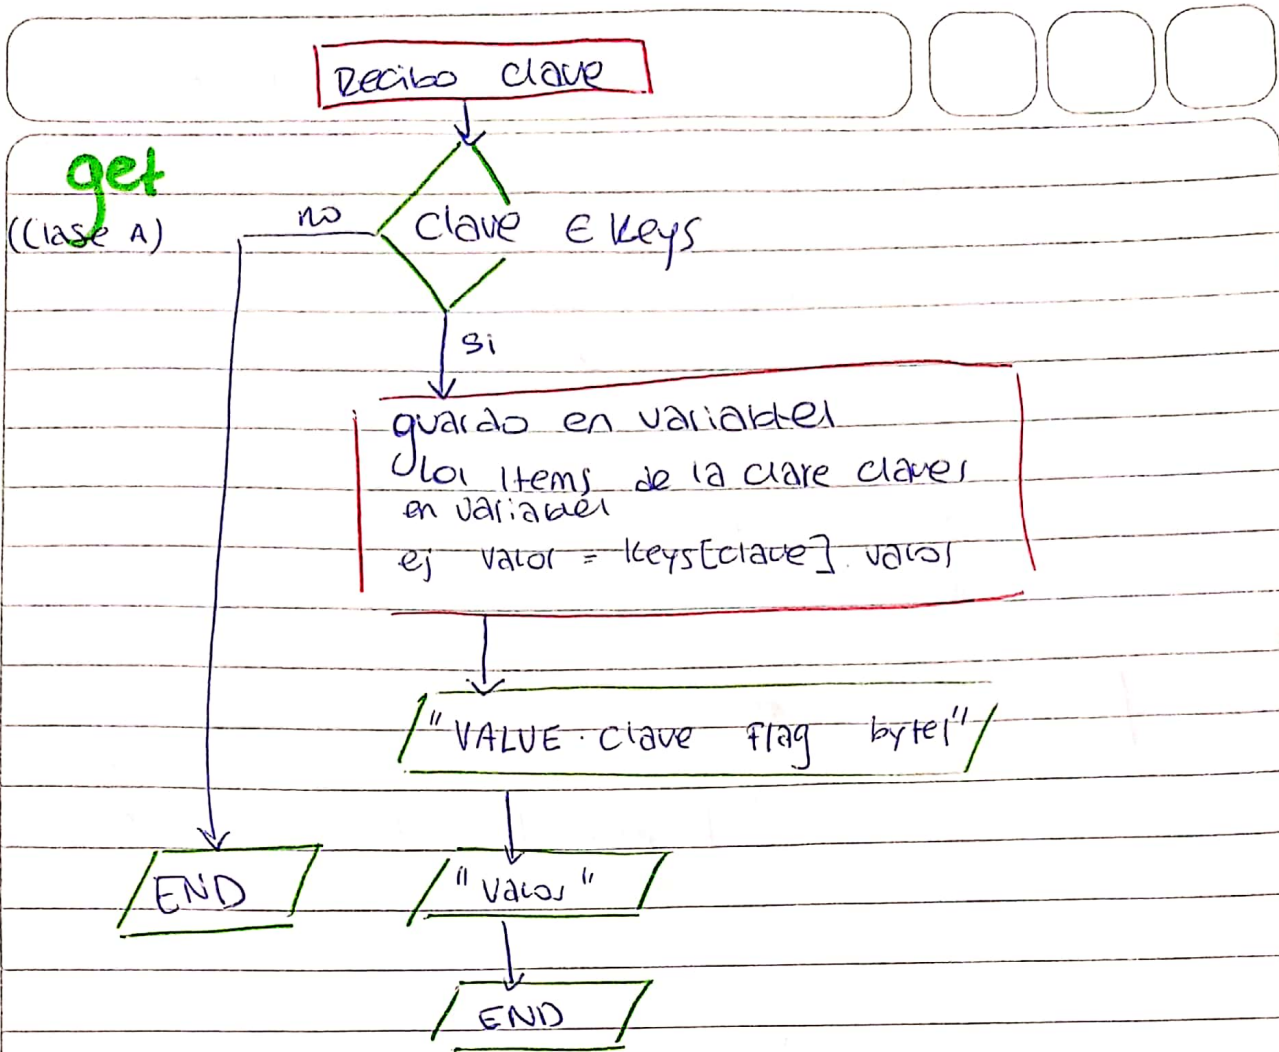 Recibo clave
get
(Clase A)
no
clave ∈ keys
si
guardo en variables
los items de la clase claves
en variables
ej valor = keys[clave].valor
"VALUE clave flag bytes"
END
"valor"
END